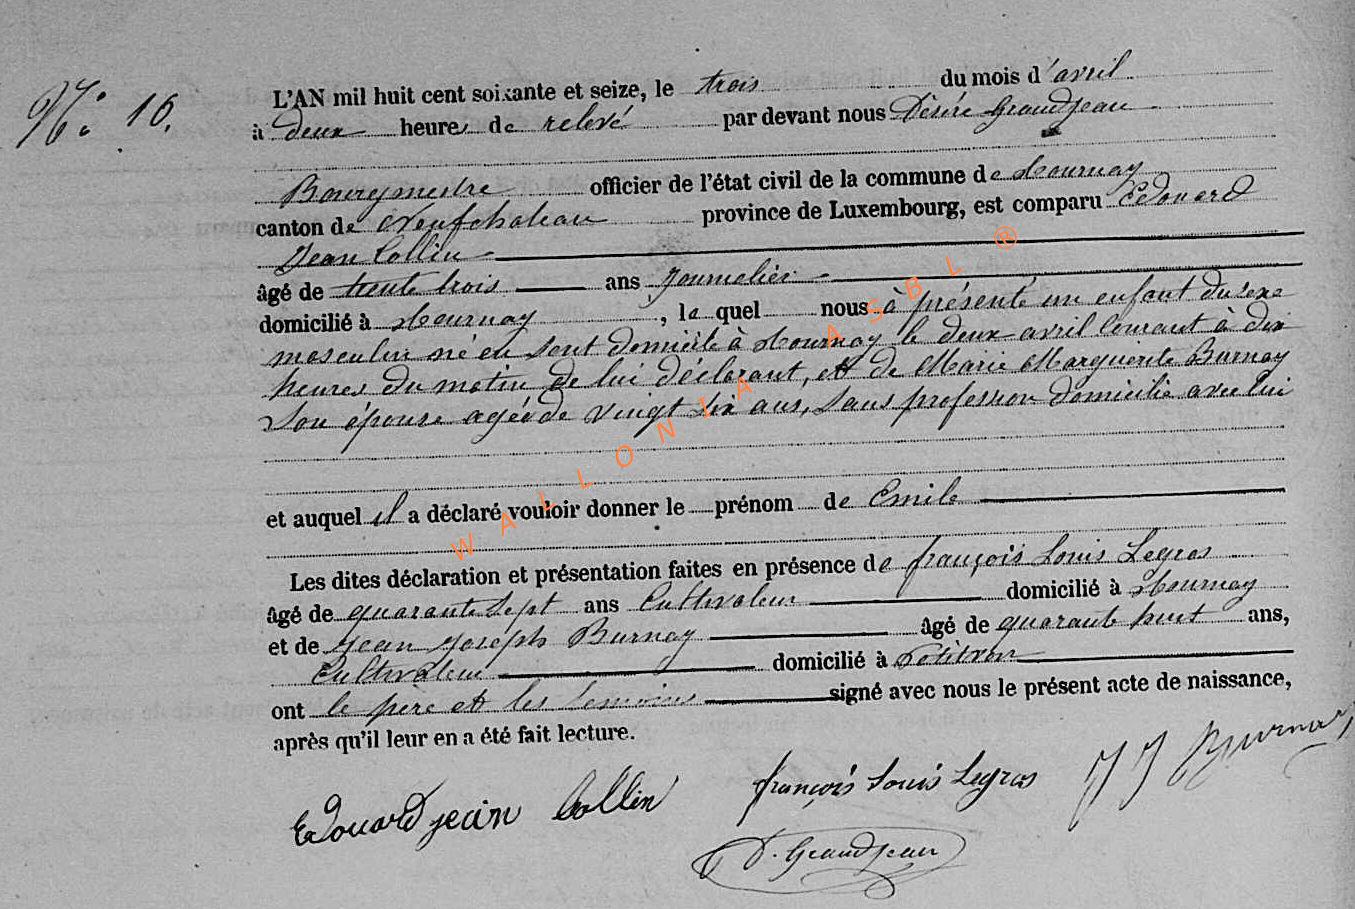 N° 16.
L'AN mil huit cent soixante et seize, le trois du mois d'avril
à deux heures de relevé par devant nous Désiré Grandjean
Bourgmestre officier de l'état civil de la commune de Tournay
canton de Neufchateau province de Luxembourg, est comparu Edouard
Jean Collin
âgé de trente trois ans Journelier
domicilié à Tournay, le quel nous à présenté un enfant du sexe
masculin né en sont domicile à Tournay le deux avril Courant à dix
heures du matin de lui déclarant, et de Marie Marguerite Burnay
Son épouse agée de vingt six ans, Sans profession domicilié avec lui
et auquel il a déclaré vouloir donner le prénom de Emile
Les dites déclaration et présentation faites en présence de françois Louis Legros
âgé de quarante Sept ans Cultivateur domicilié à Tournay
et de Jean Joseph Burnay âgé de quarante huit ans,
Cultivateur domicilié à Petitvoir
ont le père et les temoins signé avec nous le présent acte de naissance,
après qu'il leur en a été fait lecture.
Edouard jean Collin françois Louis Legros J J Burnay
D. Grandjean
WALLONIA ASBL ®